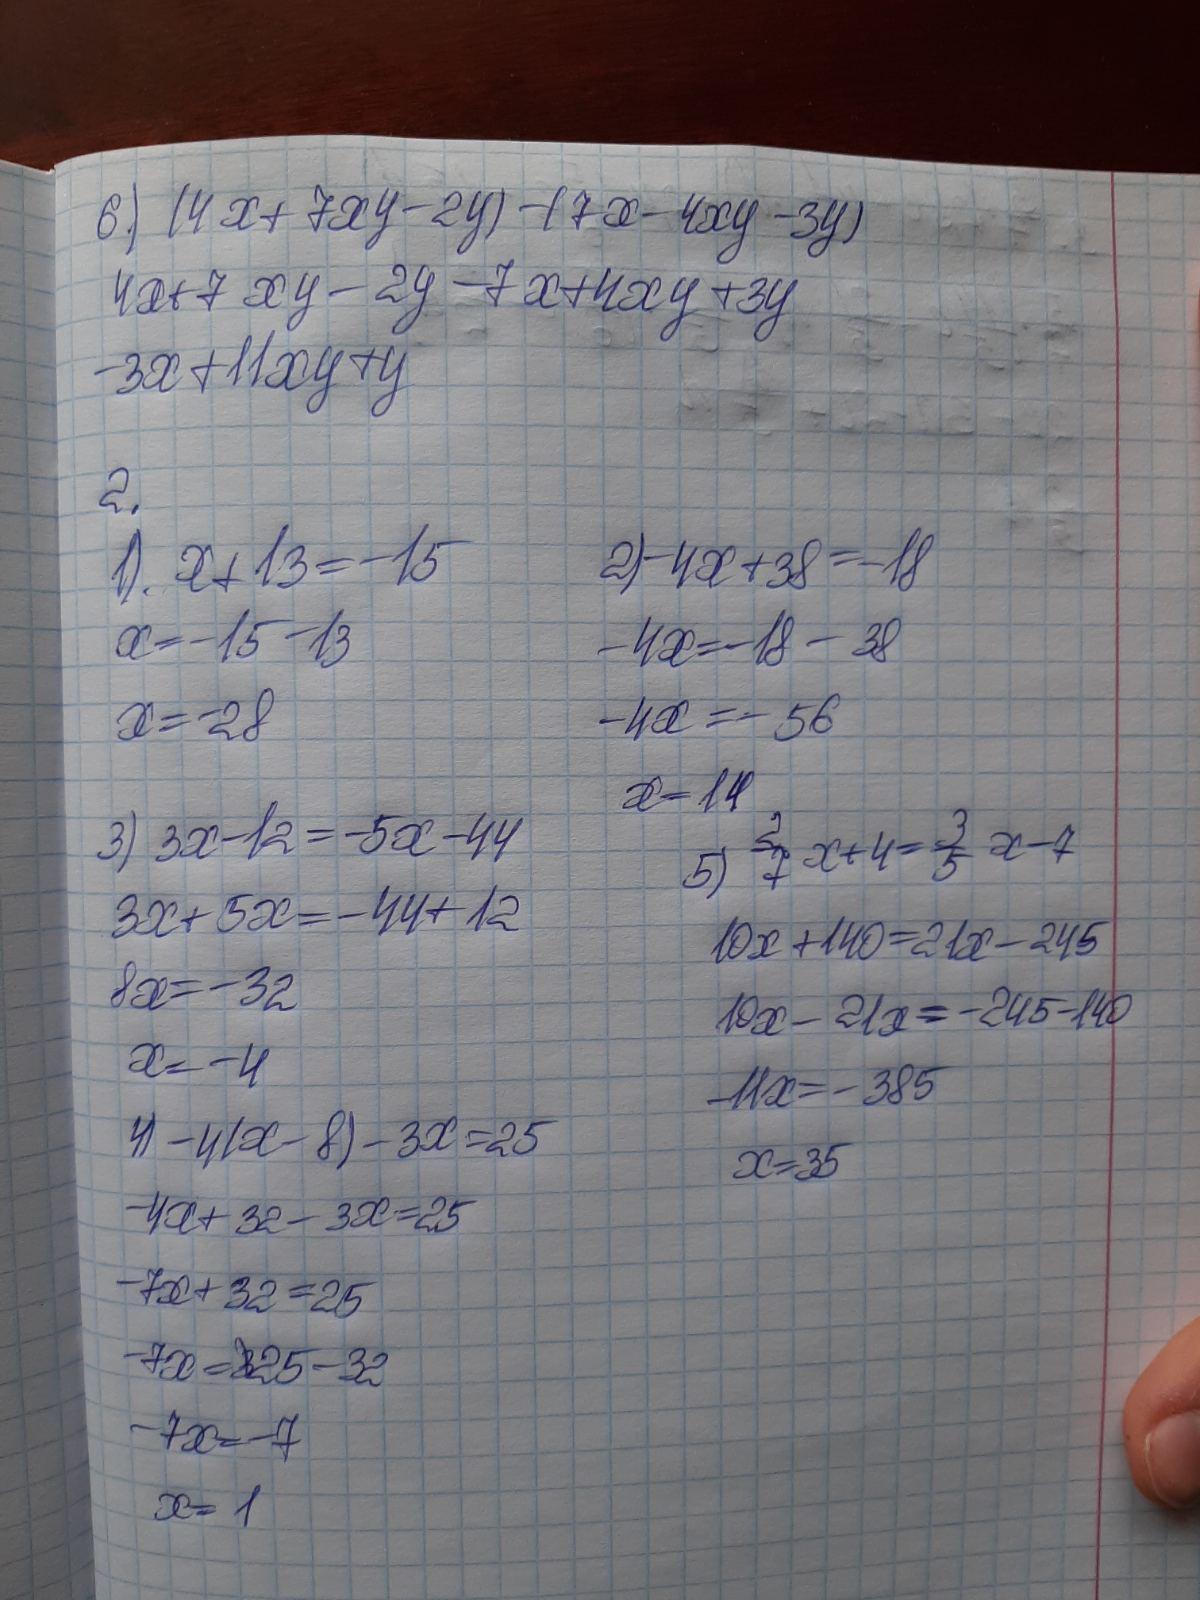 6) (4x+7xy-2y)-(7x-4xy-3y)
4x+7xy-2y-7x+4xy+3y
-3x+11xy+y
2.
1). x+13=-15
x=-15-13
x=-28
2) -4x+38=-18
-4x=-18-38
-4x=-56
x=14
3) 3x-12=-5x-44
3x+5x=-44+12
8x=-32
x=-4
4) -4(x-8)-3x=25
-4x+32-3x=25
-7x+32=25
-7x=25-32
-7x=-7
x=1
5) 2/7 x+4=3/5 x-7
10x+140=21x-245
10x-21x=-245-140
-11x=-385
x=35